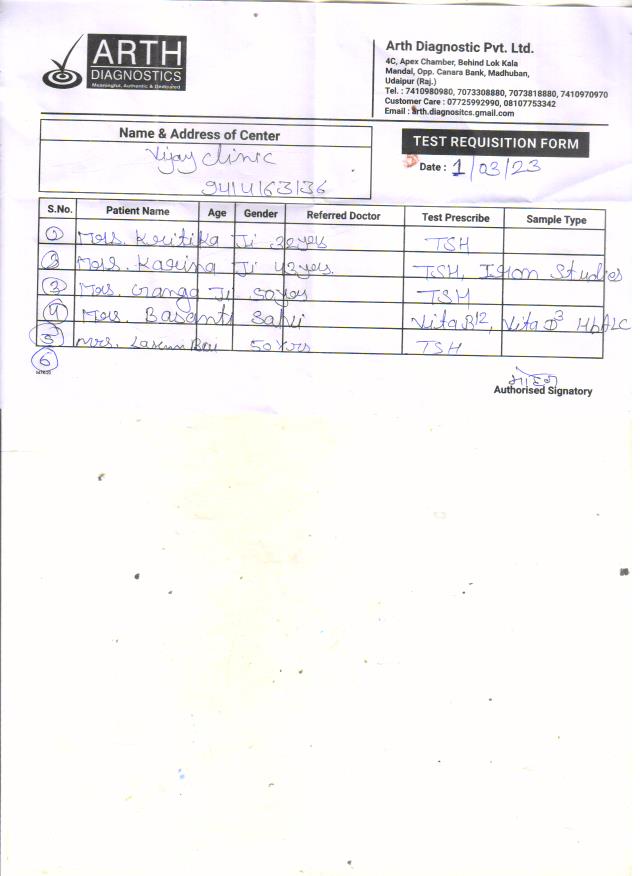 ARTH
DIAGNOSTICS
Meaningful, Authentic & Dedicated
Arth Diagnostic Pvt. Ltd.
4C, Apex Chamber, Behind Lok Kala
Mandal, Opp. Canara Bank, Madhuban,
Udaipur (Raj.)
Tel. : 7410980980, 7073308880, 7073818880, 7410970970
Customer Care : 07725992990, 08107753342
Email : arth.diagnositcs.gmail.com
Name & Address of Center
Vijay Clinic
9414163136
TEST REQUISITION FORM
Date : 1/03/23
S.No. Patient Name Age Gender Referred Doctor Test Prescribe Sample Type
1 Mrs. Kritika Ji yrs TSH
2 Mrs. Karina Ji 42yrs. TSH, Iron Studies
3 Mrs. Ganga Ji 50yrs TSH
4 Mrs. Basanti Vita B12, Vita D3 HbA1C
5 Mrs. Bai 50 Yrs TSH
6
Authorised Signatory